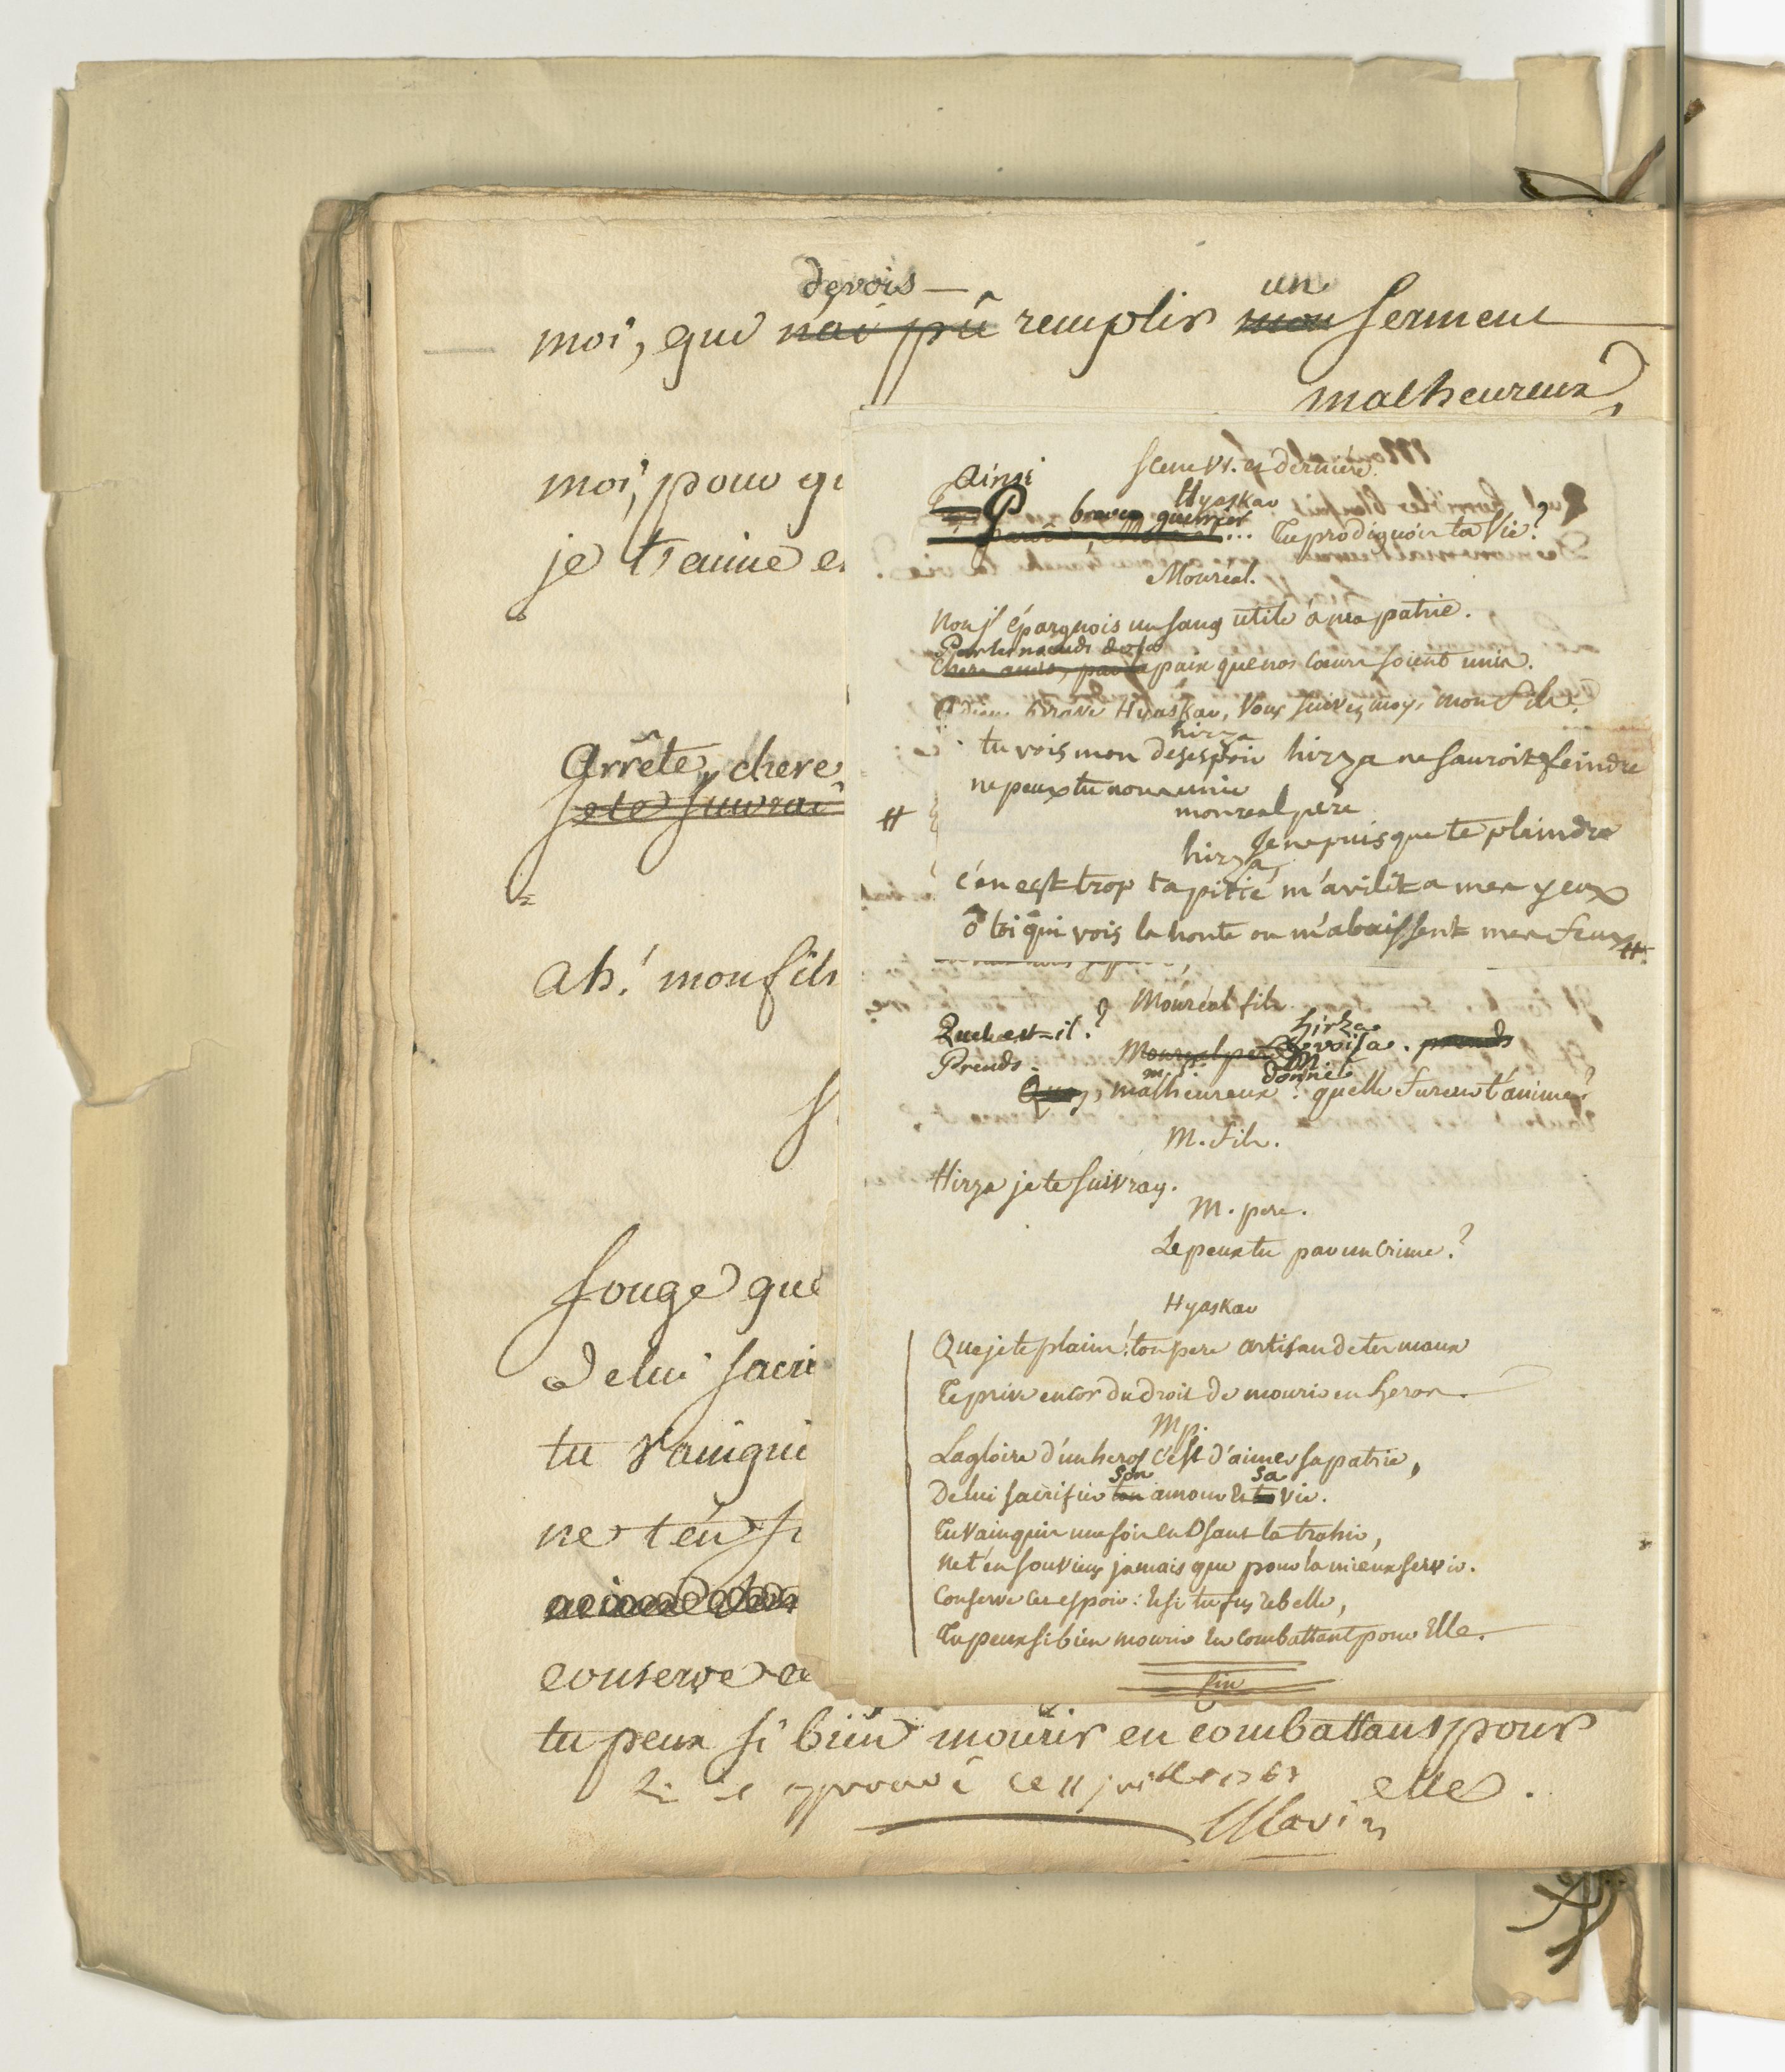 devois un
moi, que n'ai pû remplir mon serment
malheureux,
moi, pour
je t'aime
Arrête, chere
je te suivrai
Ah! mon fils
songe que
de lui sacri
tu vainqui
ne t'en
conserve
tu peux si bien mourir en combattant pour
elle.
approuvé ce 11 juillet 1767
Marin
Scene VI. et derniere.
Ainsi
Hyaskar
brave guerrier
... Tu prodiguois ta vie?
Monréal.
Non j'épargnois un sang utile à ma patrie.
Par les noeuds de la
paix que nos coeurs soient unis.
Adieu brave Hyaskar, Vous suivez moy, mon fils.
hirza
tu vois mon desespoir hirza ne sauroit feindre
ne peux tu nous unir
monreal père
Je ne puis que te plaindre
hirza
c'en est trop ta pitié m'avilit a mes yeux
ô toi qui vois la honte ou m'abaissent mes feux
Monréal fils
Quel est-il?
hirza
Monreal pere Le voisa. prends
Prends.
M.
donne
Quoy, malheureux! quelle fureur t'anime?
M. fils.
Hirza je te suivray.
M. pere.
Le peux tu par un crime?
Hyaskar
Que je te plains! ton pere artisan de tes maux
Te prive encor du droit de mourir en heros.
M p.
La gloire d'un heros c'est d'aimer sa patrie,
son sa
De lui sacrifier ton amour et ta vie.
Tu vainquis une fois et sans la trahir,
Ne t'en souviens jamais que pour la mieux servir.
Conserve cet espoir: Et si tu fus rebelle,
Tu peux si bien mourir En combattant pour Elle.
fin